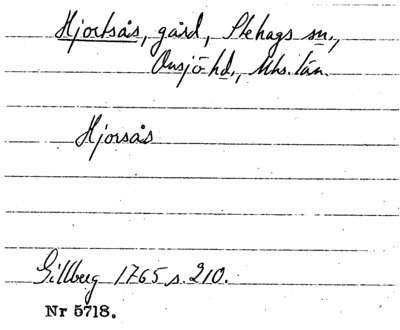 Hjortsås, gård, Stehags sn.,
Onsjö hd., Mhs. län.
Hjorsås
Gillberg 1765 s. 210.
Nr 5718.